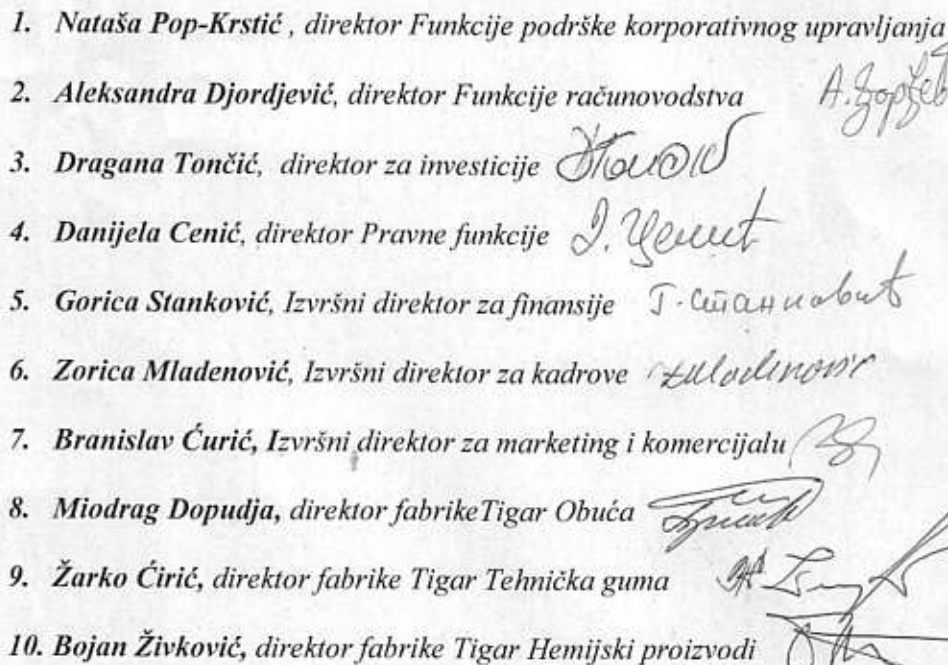 1. Nataša Pop-Krstić , direktor Funkcije podrške korporativnog upravljanja
2. Aleksandra Djordjević, direktor Funkcije računovodstva А. Ђорђев
3. Dragana Tončić, direktor za investicije
4. Danijela Cenić, direktor Pravne funkcije Д. Ценић
5. Gorica Stanković, Izvršni direktor za finansije Г. Станковић
6. Zorica Mladenović, Izvršni direktor za kadrove ZMladenović
7. Branislav Ćurić, Izvršni direktor za marketing i komercijalu
8. Miodrag Dopudja, direktor fabrike Tigar Obuća
9. Žarko Ćirić, direktor fabrike Tigar Tehnička guma
10. Bojan Živković, direktor fabrike Tigar Hemijski proizvodi